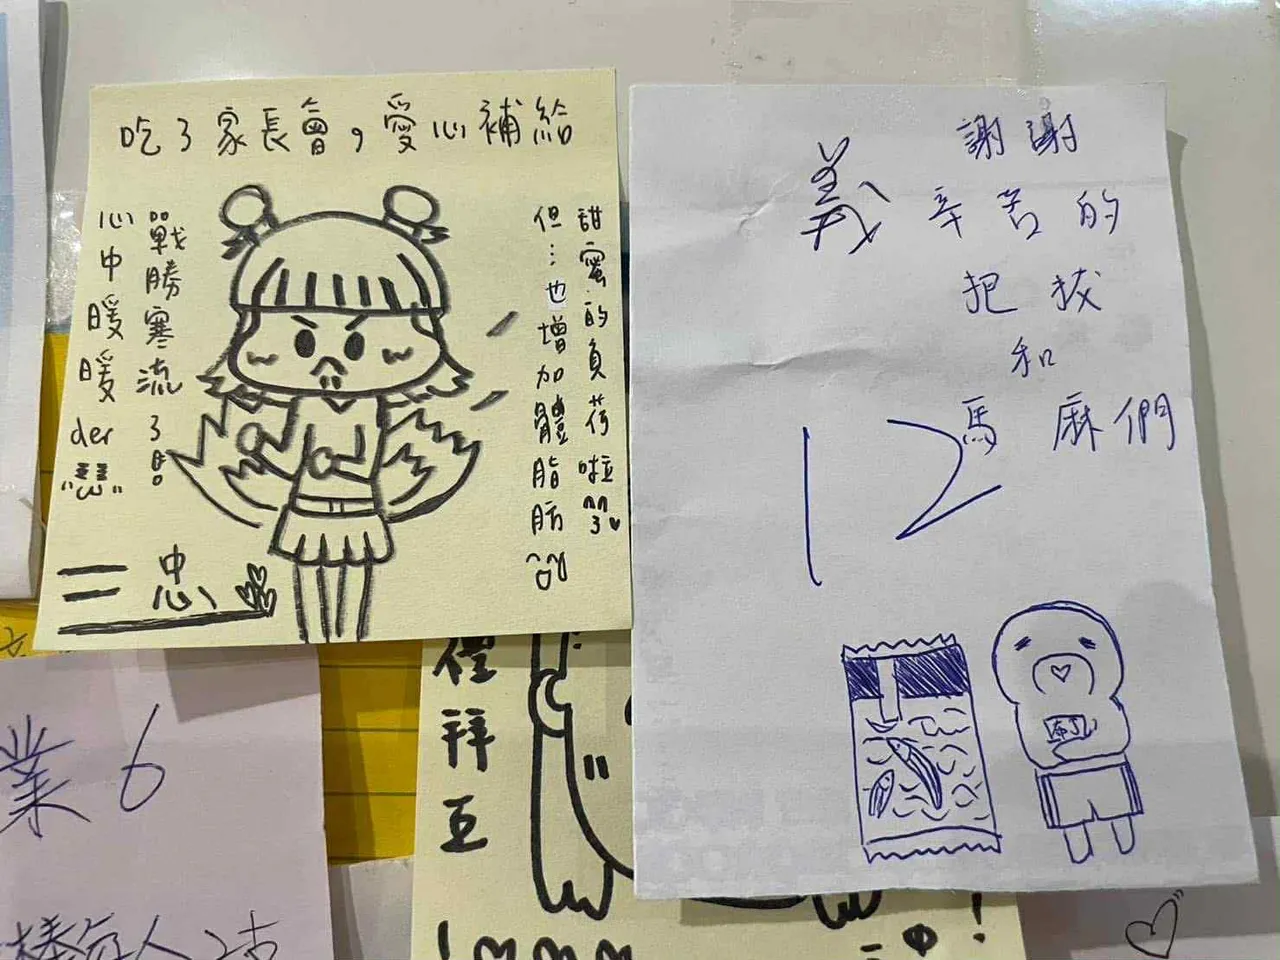 吃了家長會，愛心補給
戰勝寒流了！
心中暖暖
der
甜蜜的負荷啦
但…也增加體脂肪
二忠
謝謝
辛苦的
把拔
和
馬麻們
義
12
禮拜五
業6